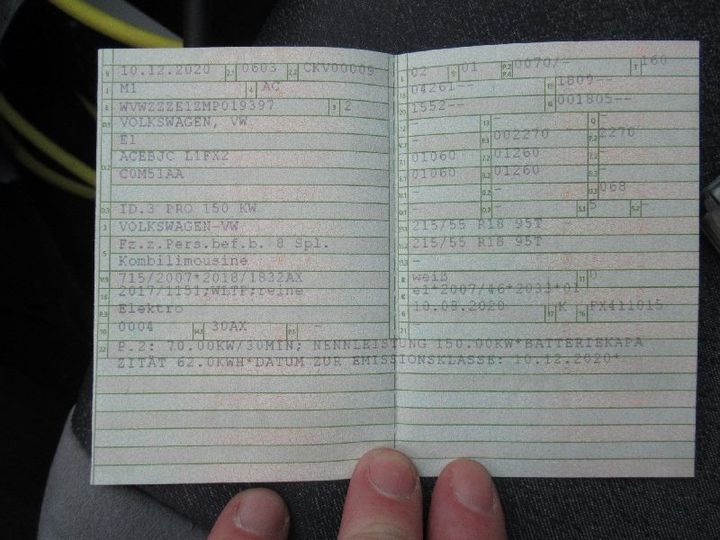 10.12.2020 0603 CKV00009
M1 AC
WVWZZZE1ZMP019397 2
VOLKSWAGEN, VW
E1
ACEBJC L1FX2
C0M51AA
ID.3 PRO 150 KW
VOLKSWAGEN-VW
Fz.z.Pers.bef.b. 8 Spl.
Kombilimousine
715/2007*2018/1832AX
2017/1151;WLTP;reine
Elektro
0004 30AX -
02 01 0070/- 160
04261-- 1809--
1552-- 001805--
- -
- 002270 2270
01060 01260 -
01060 01260 -
- - 068
- 5 -
215/55 R18 95T
215/55 R18 95T
-
weiß 0
e1*2007/46*2033*01
10.08.2020 K PX411015
P.2: 70.00KW/30MIN; NENNLEISTUNG 150.00KW*BATTERIEKAPA
ZITÄT 62.0KWH*DATUM ZUR EMISSIONSKLASSE: 10.12.2020*